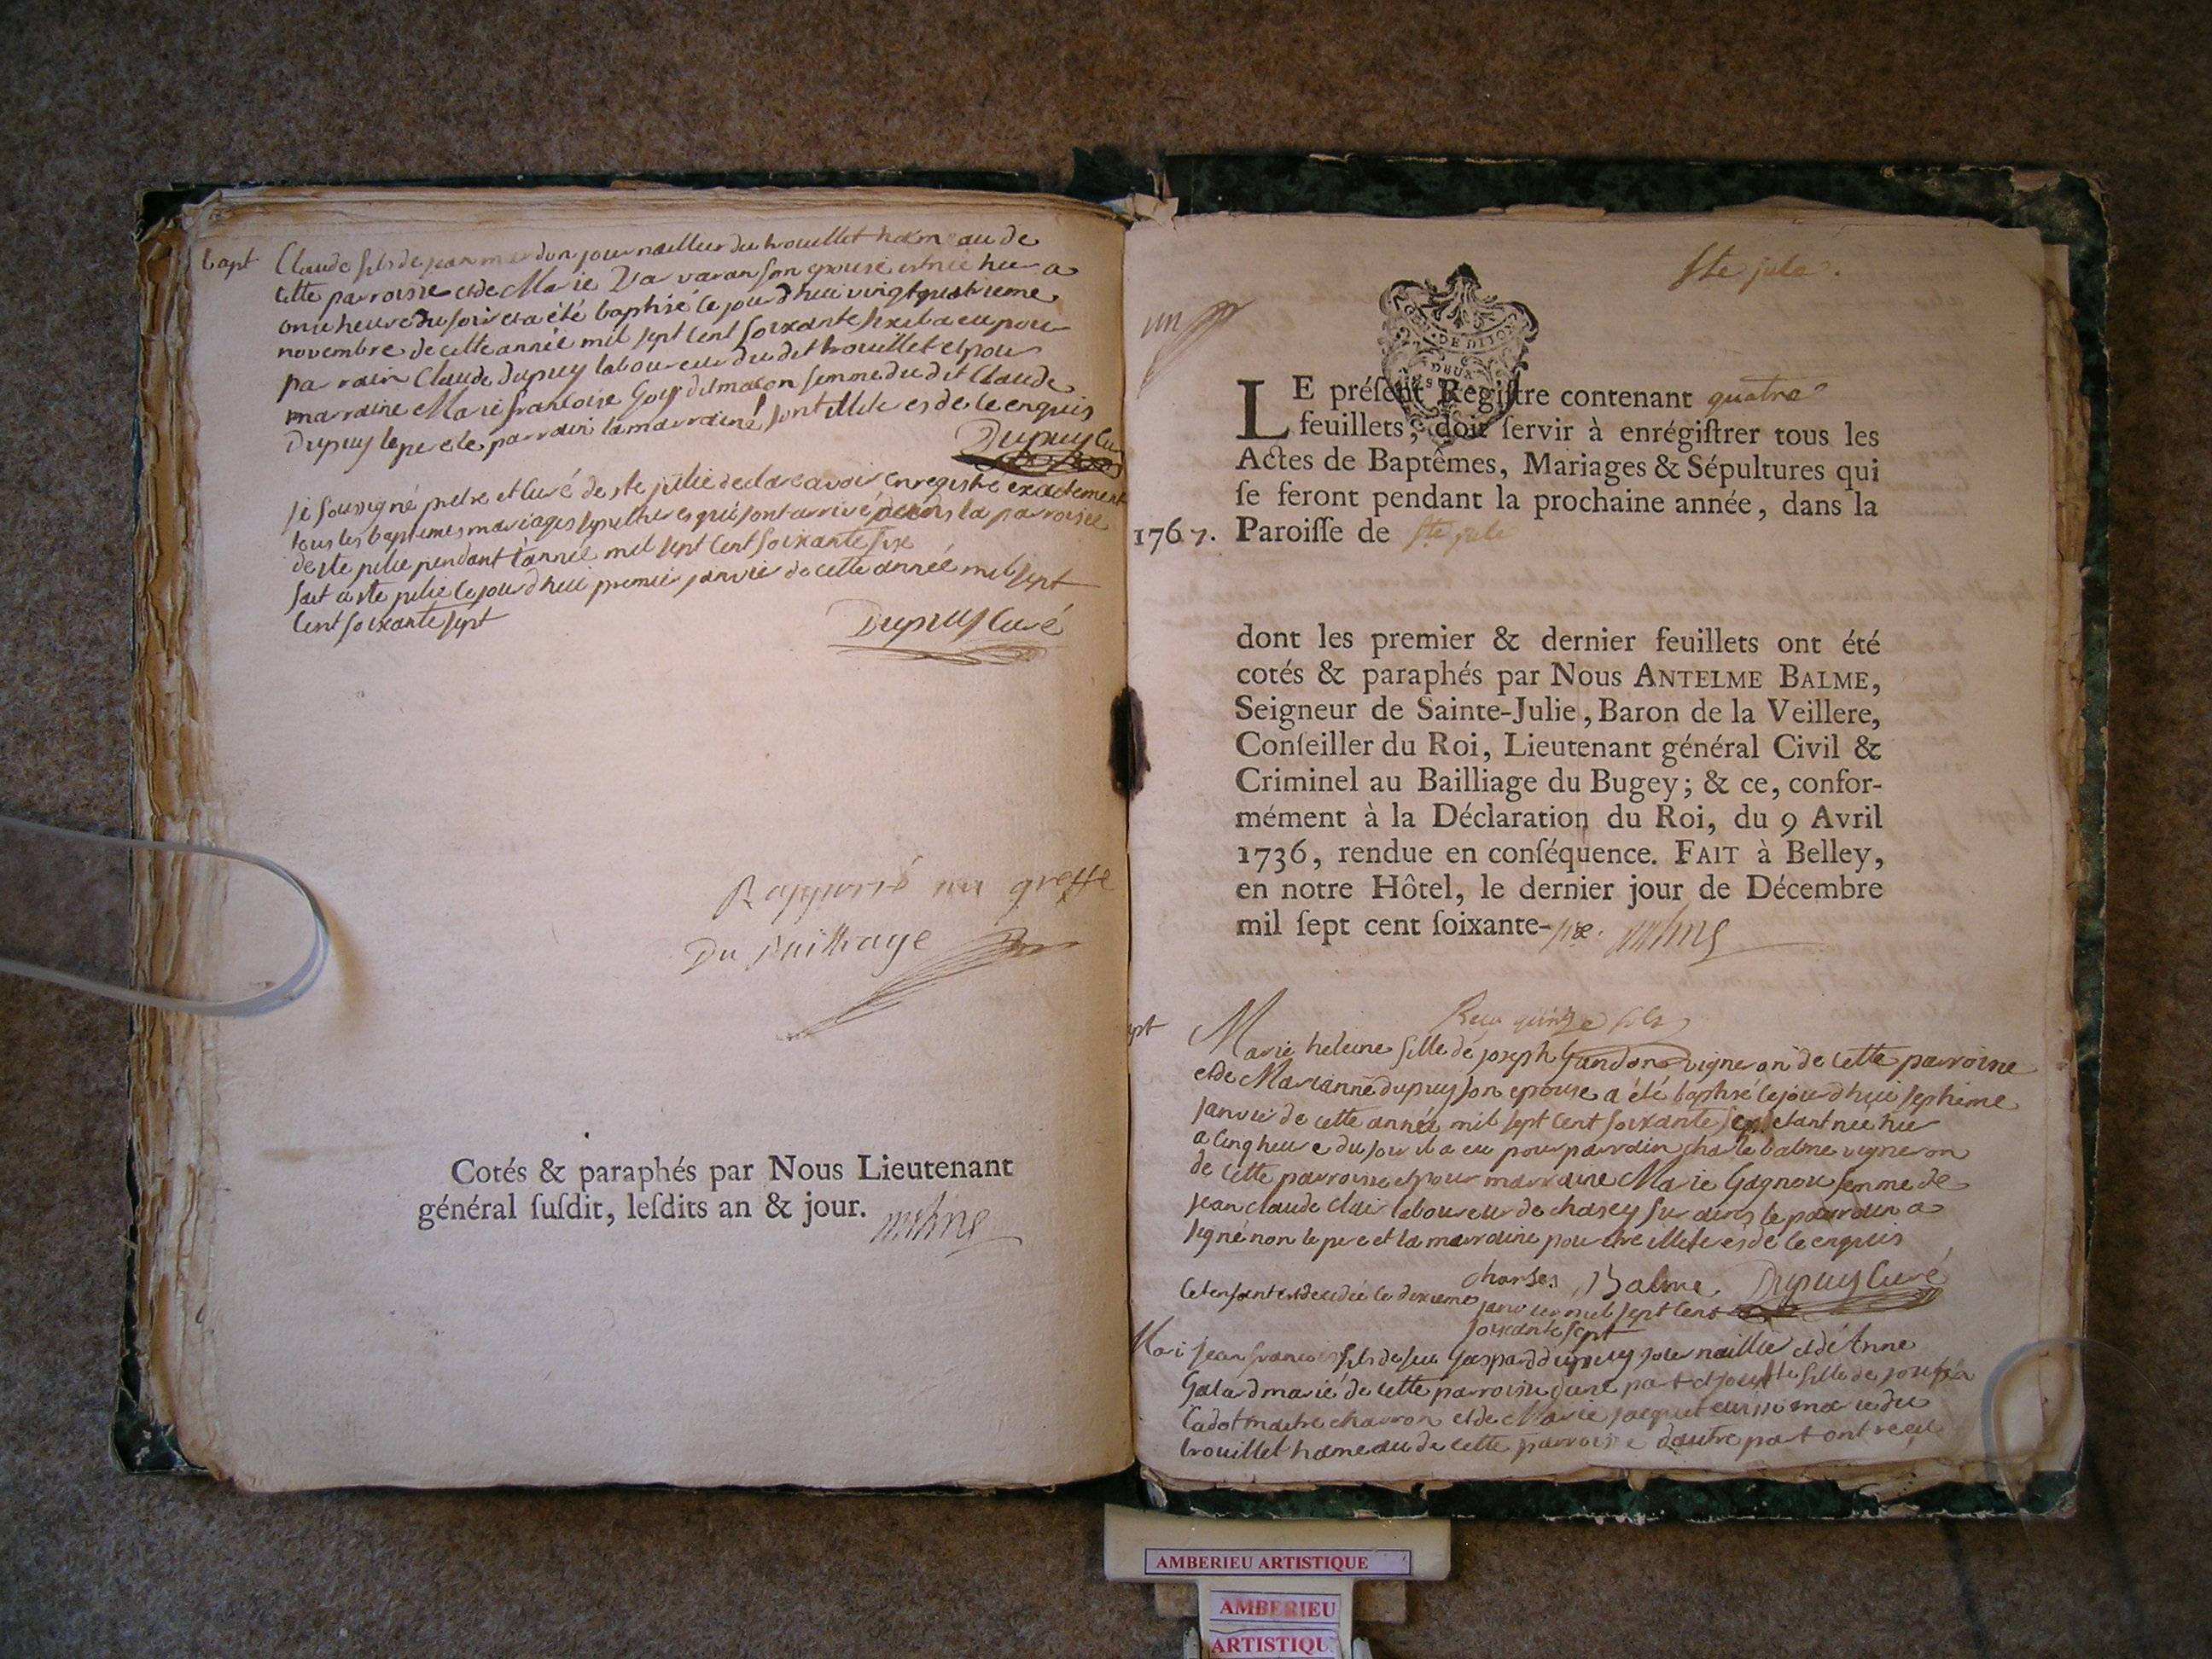 bapt Claude fils de jean mardon journaillier du trouillet hameau de
cette parroisse et de Marie Varvaran son epouse est née hier a
onze heure du soir et a été baptisé ce jourd'hui vingt quatrieme
novembre de cette année mil sept cent soixante six il a eu pour
parrain Claude Dupuy laboureur du dit trouillet et pour
marraine Marie francoise Goy femme du dit Claude
Dupuy le pere le parrain la marraine sont illiteres de ce enquis
Dupuy Cu
je soussigné pretre et Curé de ste julie declare avoir enregistré exactement
tous les baptemes mariages sepultures qui sont arrivé dans la parroisse
de ste julie pendant l'année mil sept Cent soixante six
fait a ste julie ce jourd'hui premier janvier de cette année mil sept
Cent soixante sept
Dupuy Curé
Rapporté au greffe
Du Bailliage
Cotés & paraphés par Nous Lieutenant
général ſuſdit, leſdits an & jour.
Ste jule.
un
DE DIJON
DEUX
LE préſent Regiſtre contenant quatre
feuillets, doit ſervir à enrégiſtrer tous les
Actes de Baptêmes, Mariages & Sépultures qui
ſe feront pendant la prochaine année, dans la
1767. Paroiſſe de Ste jule
dont les premier & dernier feuillets ont été
cotés & paraphés par Nous ANTELME BALME,
Seigneur de Sainte-Julie, Baron de la Veillere,
Conſeiller du Roi, Lieutenant général Civil &
Criminel au Bailliage du Bugey; & ce, confor-
mément à la Déclaration du Roi, du 9 Avril
1736, rendue en conſéquence. FAIT à Belley,
en notre Hôtel, le dernier jour de Décembre
mil ſept cent ſoixante-six.
Reçu quinze sols
pt Marie heleine fille de joseph Gandon vigneron de cette parroisse
et de Marianne dupuy son epouse a été baptisé ce jourd'hui septieme
janvier de cette année mil sept Cent soixante sept etant née hier
a Cinq heure du soir il a eu pour parrain charle balme vigneron
de cette parroisse et pour marraine Marie Gagnon femme de
jean claude Clair laboureur de chasey sur ains le parrain a
signé non le pere et la marraine pour etre illiteres de ce enquis
charles Balme Dupuy Curé
Cet enfant est decedée le dixieme
janvier mil sept Cent
soixante sept
Mari jean francois fils de feu Gaspard dupuy journaillier et de Anne
Galard marié de cette parroisse d'une part et josephte fille de joseph
Cadot maitre charron et de Marie jacquet aussi marié du
trouillet hameau de cette parroisse d'autre part ont reçu
AMBERIEU ARTISTIQUE
AMBERIEU
ARTISTIQU